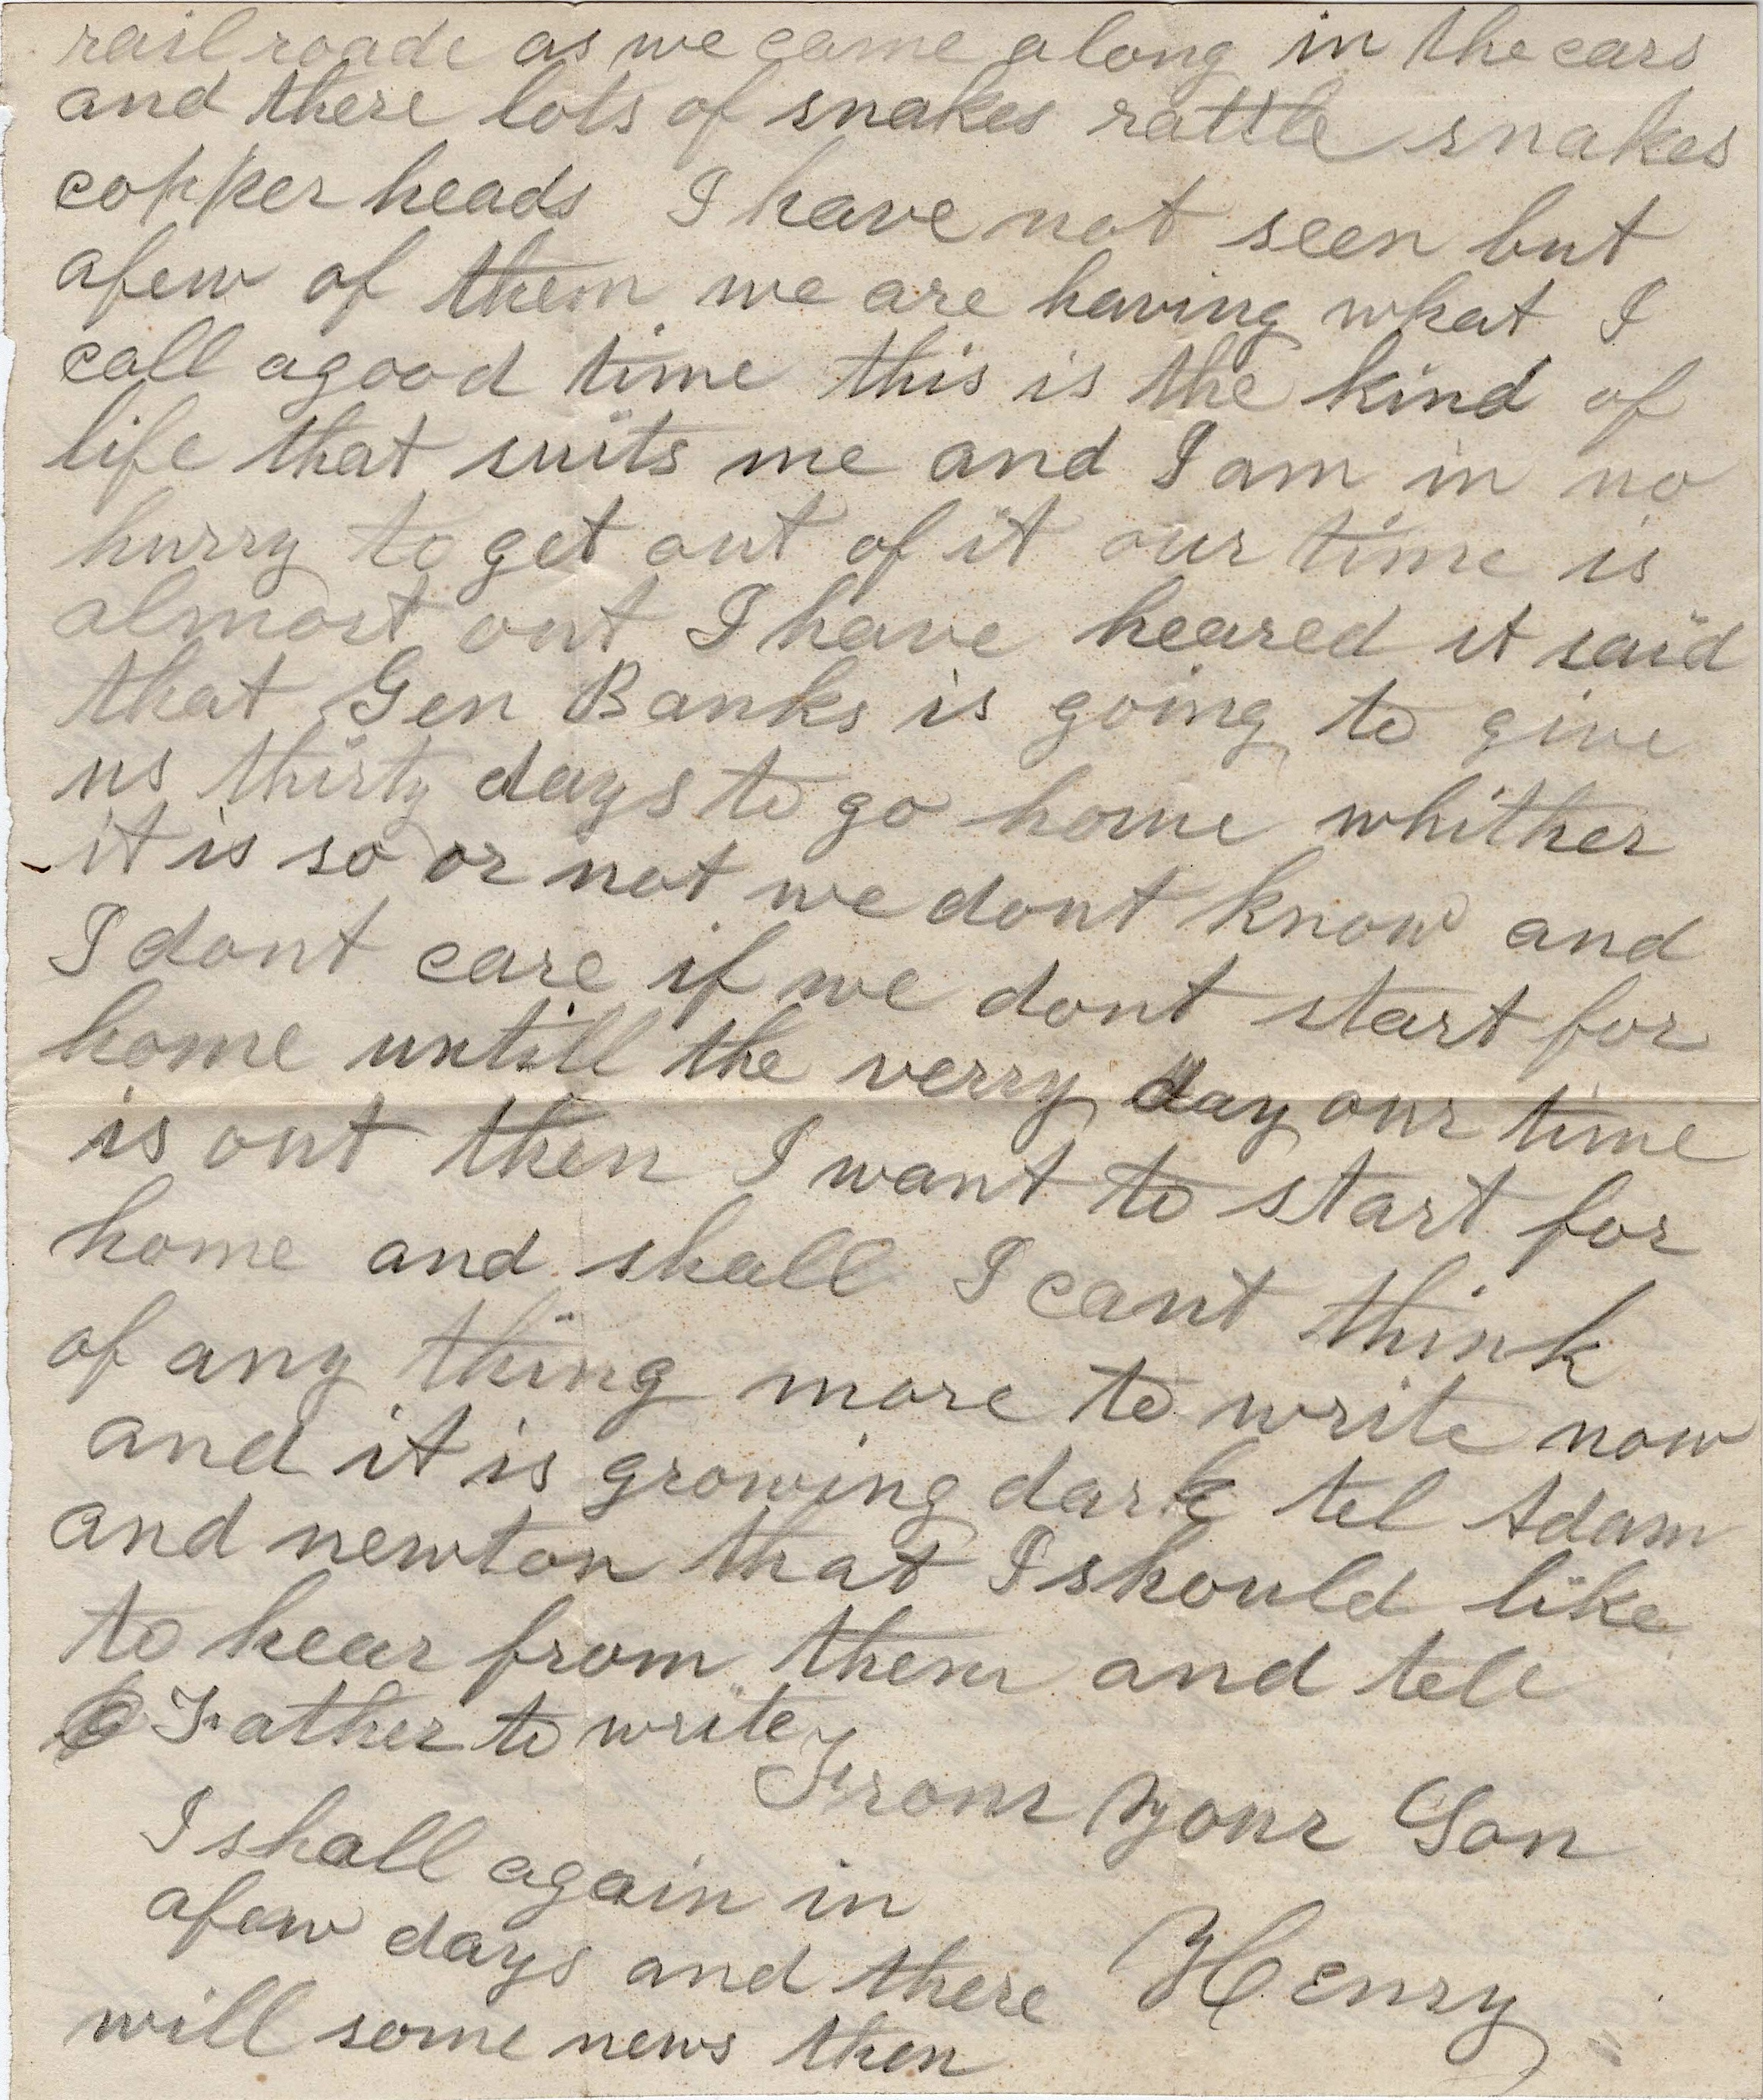 rail roade as we came along in the cars
and there lots of snakes rattle snakes
copper heads I have not seen but
afew of them we are having what I
call agood time this is the kind of
life that suits me and I am in no
hurry to get out of it our time is
almost out I have heared it said
that Gen Banks is going to give
us thirty days to go home whither
it is so or not we dont know and
I dont care if we dont start for
home untill the verry day our time
is out then I want to start for
home and shall I cant think
of any thing more to write now
and it is growing dark tel Adam
and newton that I should like
to hear from them and tell
Father to write
From your Son
I shall again in
afew days and there
will some news then
Henry